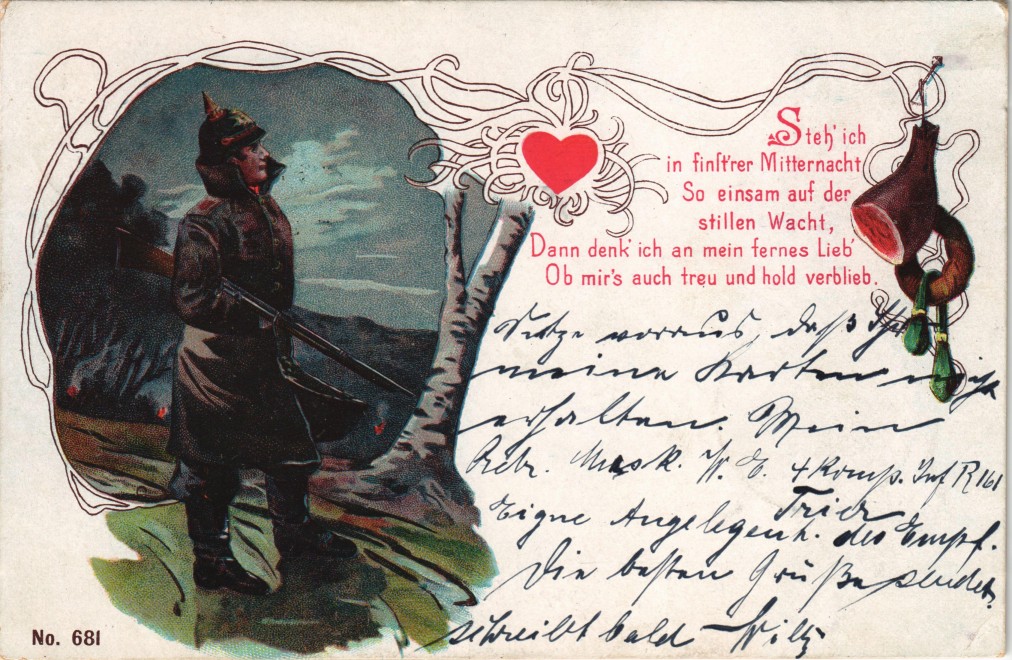 Steh' ich
in finst'rer Mitternacht
So einsam auf der
stillen Wacht,
Dann denk' ich an mein fernes Lieb'
Ob mir's auch treu und hold verblieb.
Setze voraus, daß Ihr
meine Karten nicht
erhalten. Mein
Adr. Musk. W. E. 4 Komp. Inf R 161
Trier
Eigne Angelegenh. des Empf.
Die besten Grüße sendet,
schreibt bald Willy
No. 681